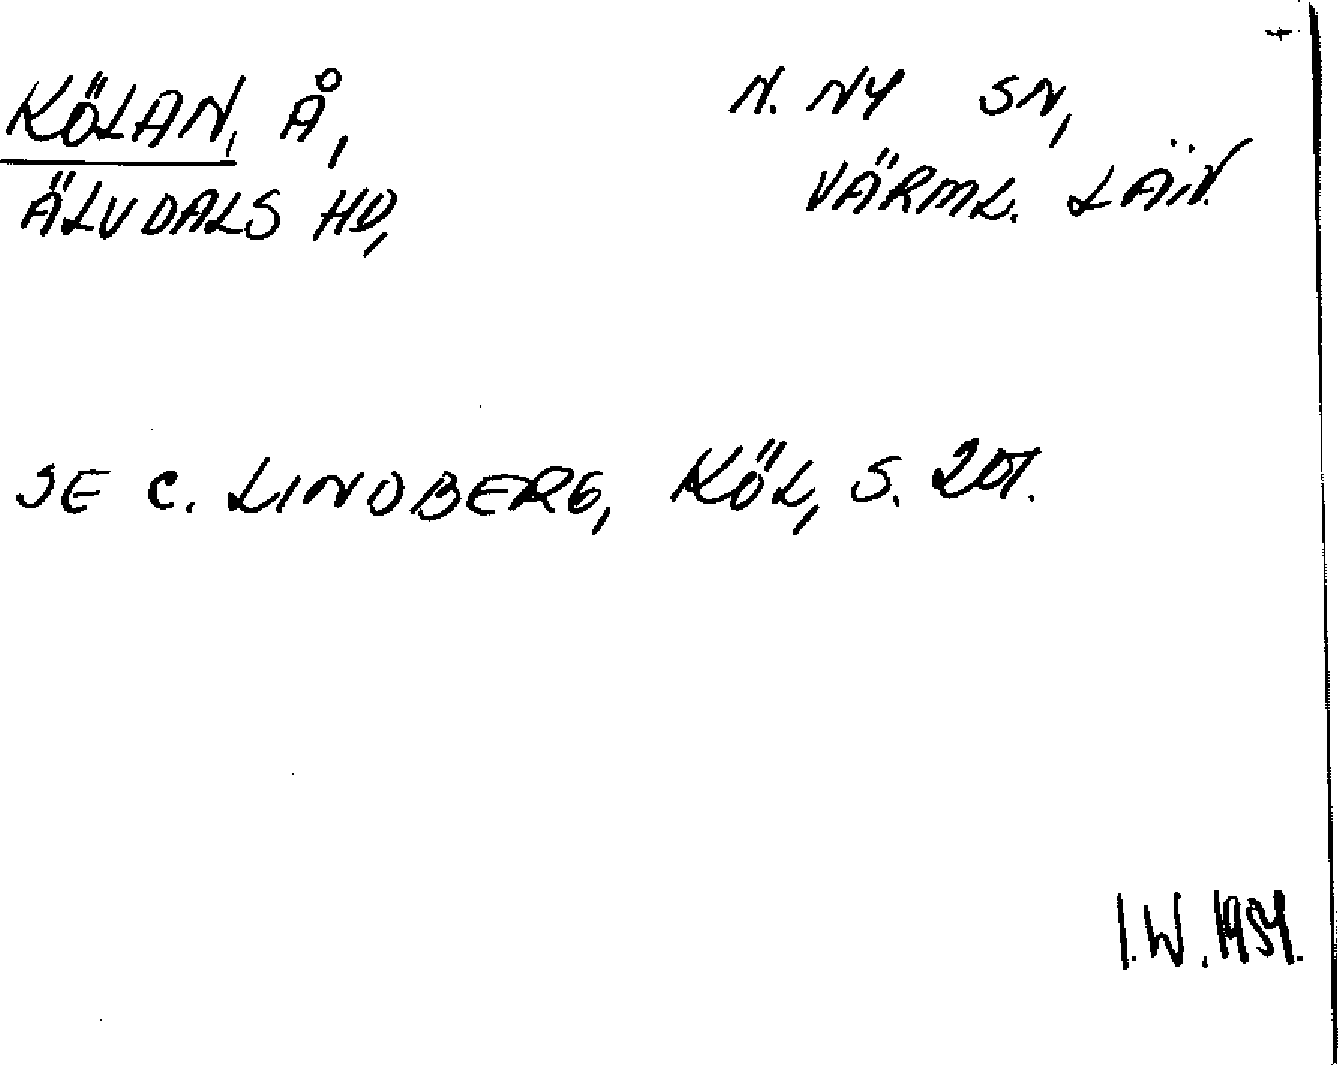 KÖLAN, Å,
N. NY SN,
ÄLVDALS HD,
VÄRML. LÄN.
SE C. LINDBERG, KÖL, S.
I.W.